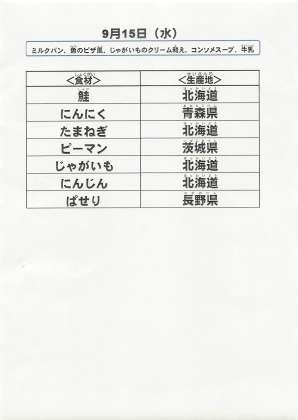 9月15日（水）
ミルクパン、鮭のピザ風、じゃがいものクリーム和え、コンソメスープ、牛乳
＜食材＞ ＜生産地＞
鮭 北海道
にんにく 青森県
たまねぎ 北海道
ピーマン 茨城県
じゃがいも 北海道
にんじん 北海道
ぱせり 長野県